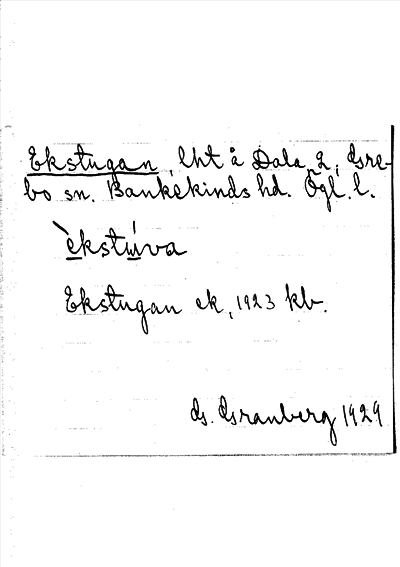 Ekstugan, lht å Dala 2, Gre-
bo sn. Bankekinds hd. Ögl. l.
èkstúva
Ekstugan ek, 1923 kb.
G. Granberg 1929